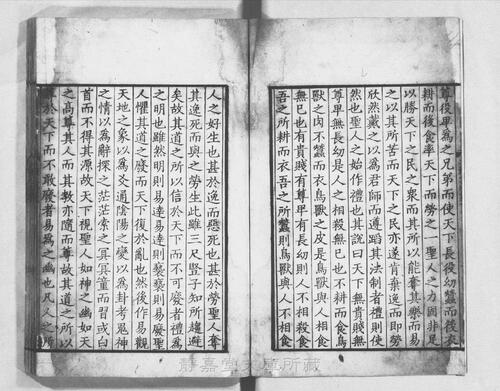 尊役卑為之兄弟而使天下長役幼蠶而後衣
耕而後食率天下而勞之一聖人之力固非足
以勝天下之民之衆而其所以能奪其樂而易
之以其所苦而天下之民亦遂肯棄逸而即勞
欣然戴之以為君師而遵蹈其法制者禮則使
然也聖人之始作禮也其說曰天下無貴賤無
尊卑無長幼是人之相殺無已也不耕而食鳥
獸之肉不蠶而衣鳥獸之皮是鳥獸與人相食
無已也有貴賤有尊卑有長幼則人不相殺食
吾之所耕而衣吾之所蠶則鳥獸與人不相食
人之好生也甚於逸而惡死也甚於勞聖人奪
其逸死而與之勞生此雖三尺豎子知所趨避
矣故其道之所以信於天下而不可廢者禮為
之明也雖然明則易達易達則褻褻則易廢聖
人懼其道之廢而天下復於亂也然後作易觀
天地之象以為爻通陰陽之變以為卦考鬼神
之情以為辭探之茫茫索之冥冥童而習之白
首而不得其源故天下視聖人如神之幽如天
之高尊其人而其教亦隨而尊故其道之所以
尊於天下而不敢廢者易為之幽也凡人之所
靜嘉堂文庫所藏